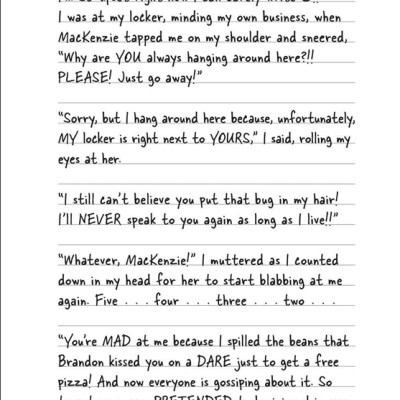 I was at my locker, minding my own business, when
MacKenzie tapped me on my shoulder and sneered,
"Why are YOU always hanging around here?!!
PLEASE! Just go away!"
"Sorry, but I hang around here because, unfortunately,
MY locker is right next to YOURS," I said, rolling my
eyes at her.
"I still can't believe you put that bug in my hair!
I'll NEVER speak to you again as long as I live!!"
"Whatever, MacKenzie!" I muttered as I counted
down in my head for her to start blabbing at me
again. Five . . . four . . . three . . . two . . .
"You're MAD at me because I spilled the beans that
Brandon kissed you on a DARE just to get a free
pizza! And now everyone is gossiping about it. So